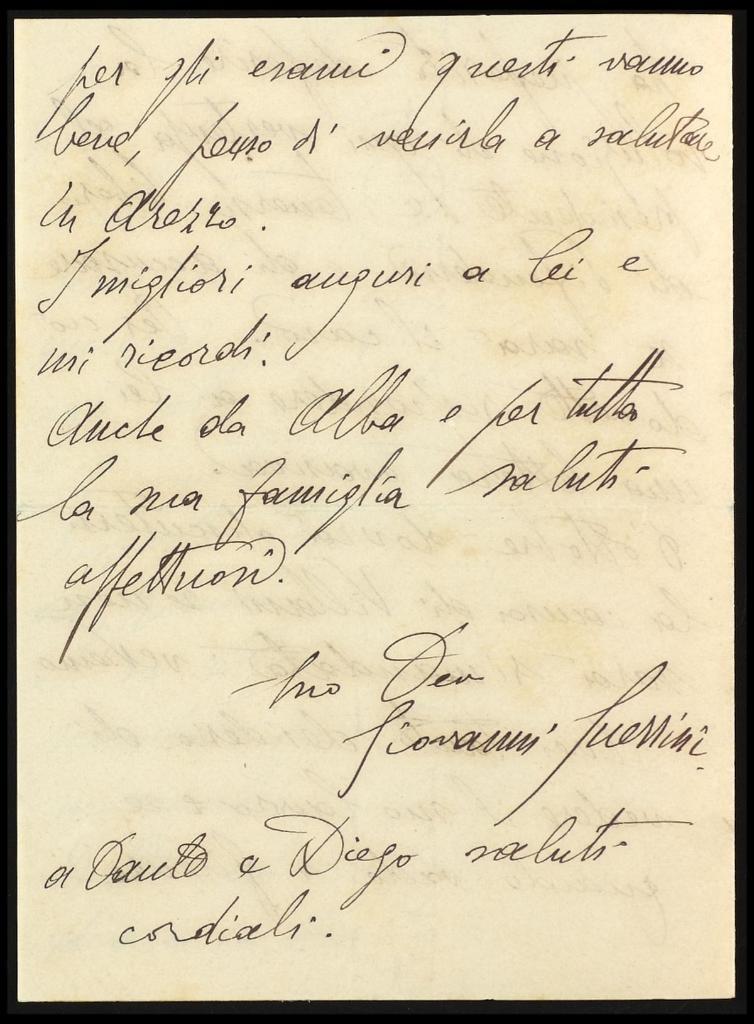 per gli esami questi vanno
bene, penso di venirla a salutare
in Arezzo.
I migliori auguri a lei e
mi ricordi.
Anche da Alba e per tutta
la sua famiglia saluti
affettuosi.
Suo Dev
Giovanni Guerrini.
a Dante e Diego saluti
cordiali.